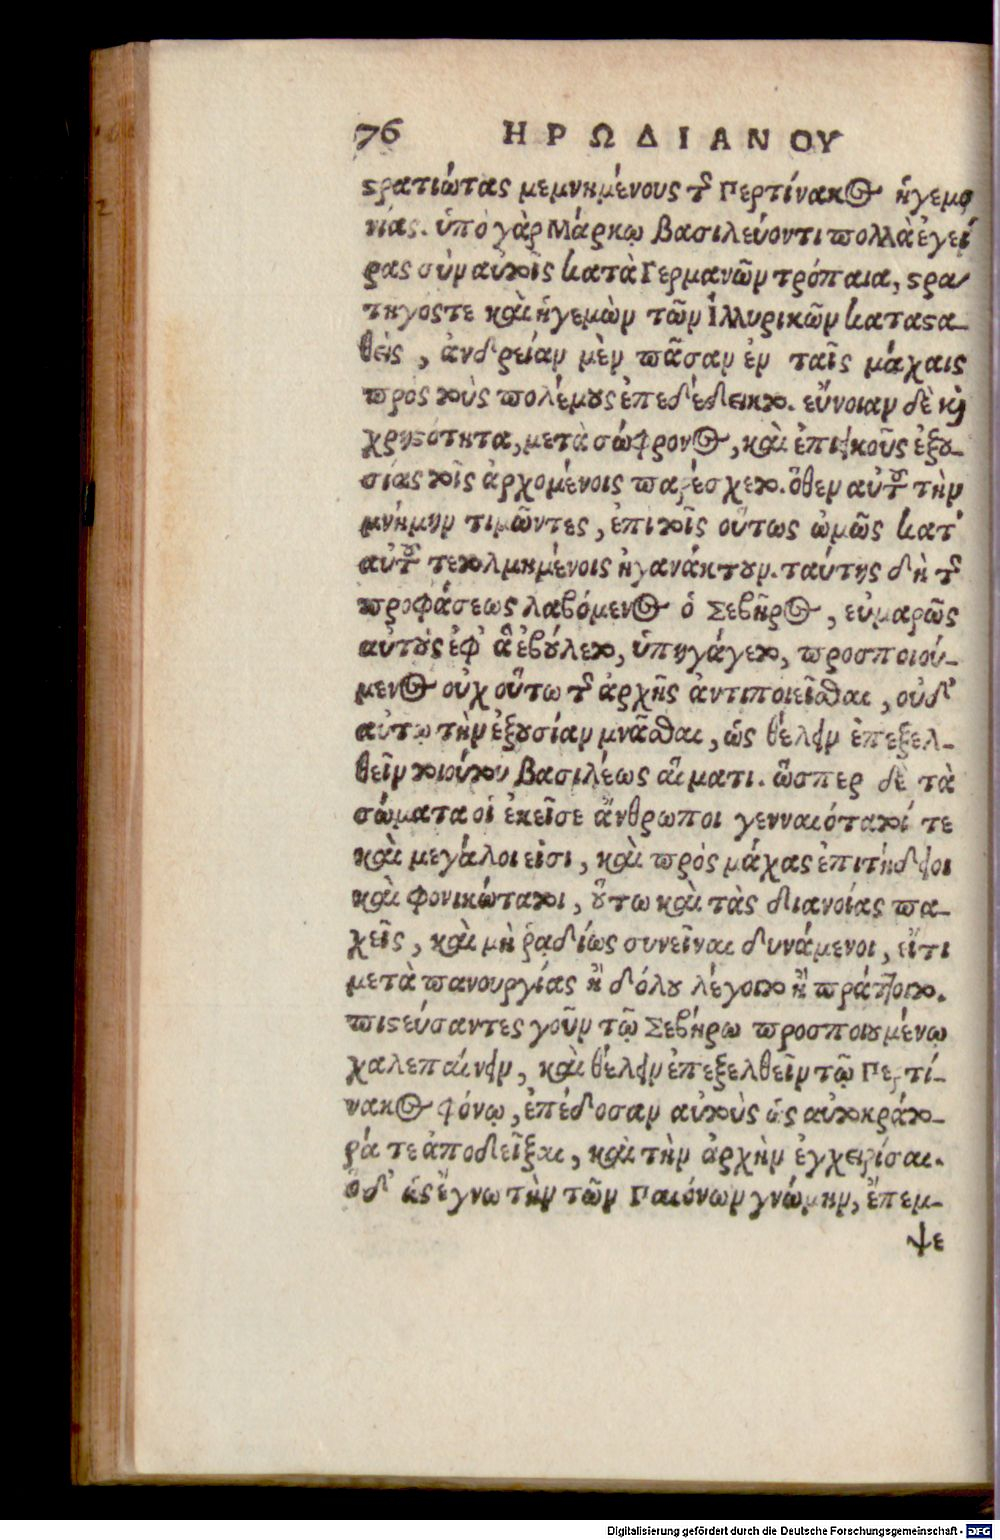 76 ΗΡΩΔΙΑΝΟΥ
ϛρατιώτας μεμνημένους τ῀ Περτίνακος ἡγεμο
νίας. ὑπὸ γὰρ Μάρκῳ βασιλεύοντι πολλὰ ἐγεί
ρας σὺν αὐτοῖς κατὰ Γερμανῶν τρόπαια, ϛρα
τηγόςτε καὶ ἡγεμὼν τῶν Ἰλλυρικῶν καταϛα-
θεὶς, ἀνδρείαν μὲν πᾶσαν ἐν ταῖς μάχαις
πρὸς τοὺς πολέμους ἐπεδέδεικτο. εὔνοιαν δὲ καὶ
χρηϛότητα, μετὰ σώφρονος, καὶ ἐπιεικοῦς ἐξου-
σίας τοῖς ἀρχομένοις παρέσχετο. ὅθεν αὐτοῦ τὴν
μνήμην τιμῶντες, ἐπὶ τοῖς οὕτως ὠμῶς κατ'
αὐτοῦ τετολμημένοις ἠγανάκτουν. ταύτης δὴ τ῀
προφάσεως λαβόμενος ὁ Σεβῆρος, εὐμαρῶς
αὐτοὺς ἐφ' ἃ ἐβούλετο, ὑπηγάγετο, προσποιού-
μενος οὐχ οὕτω τ῀ ἀρχῆς ἀντιποιεῖσθαι, οὐδ'
αὑτῳ τὴν ἐξουσίαν μνᾶσθαι, ὡς θέλειν ἐπεξελ-
θεῖν τοιούτου βασιλέως αἵματι. ὥσπερ δὲ τὰ
σώματα οἱ ἐκεῖσε ἄνθρωποι γενναιότατοί τε
καὶ μεγάλοι εἰσι, καὶ πρὸς μάχας ἐπιτήδειοι
καὶ φονικώτατοι, οὕτω καὶ τὰς διανοίας πα-
χεῖς, καὶ μὴ ῥαδίως συνεῖναι δυνάμενοι, εἴτι
μετὰ πανουργίας ἢ δόλου λέγοιτο ἢ πράττοιτο.
πιϛεύσαντες γοῦν τῷ Σεβήρω προσποιουμένῳ
χαλεπαίνειν, καὶ θέλειν ἐπεξελθεῖν τῷ Περτί-
νακος φόνῳ, ἐπέδοσαν αὑτοὺς ὡς αὐτοκράτο-
ρά τε ἀποδεῖξαι, καὶ τὴν ἀρχὴν ἐγχειρίσαι.
ὁδ' ὡς ἔγνω τὴν τῶν Παιόνων γνώμην, ἔπεμ-
ψε
Digitalisierung gefördert durch die Deutsche Forschungsgemeinschaft - DFG